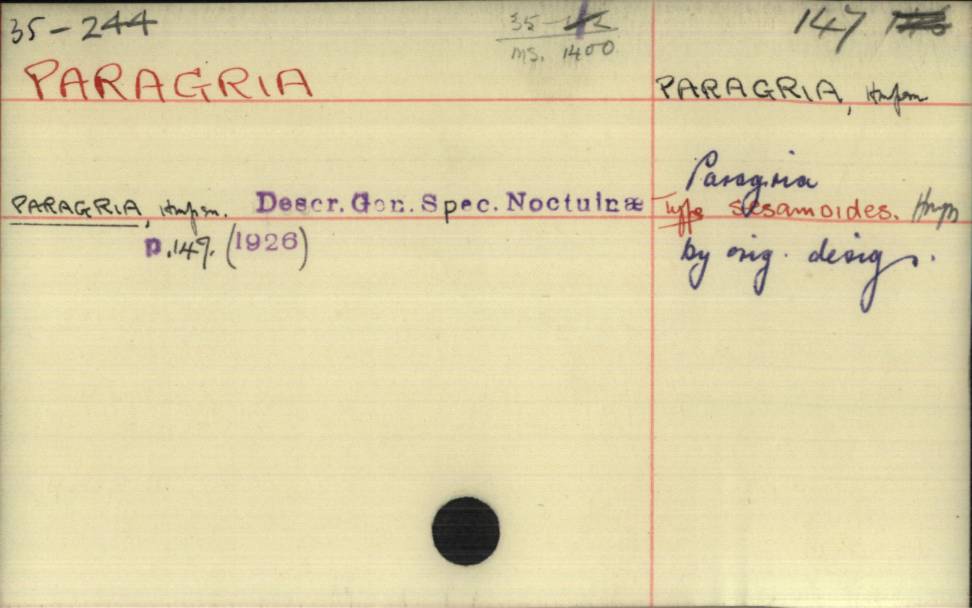 35-244
35-
MS. 1400
147
PARAGRIA
PARAGRIA, Hmpsn
PARAGRIA, Hmpsn. Descr. Gen. Spec. Noctuinæ
p. 147. (1926)
Paragria
Type sesamoides. Hmps
by orig. desig.